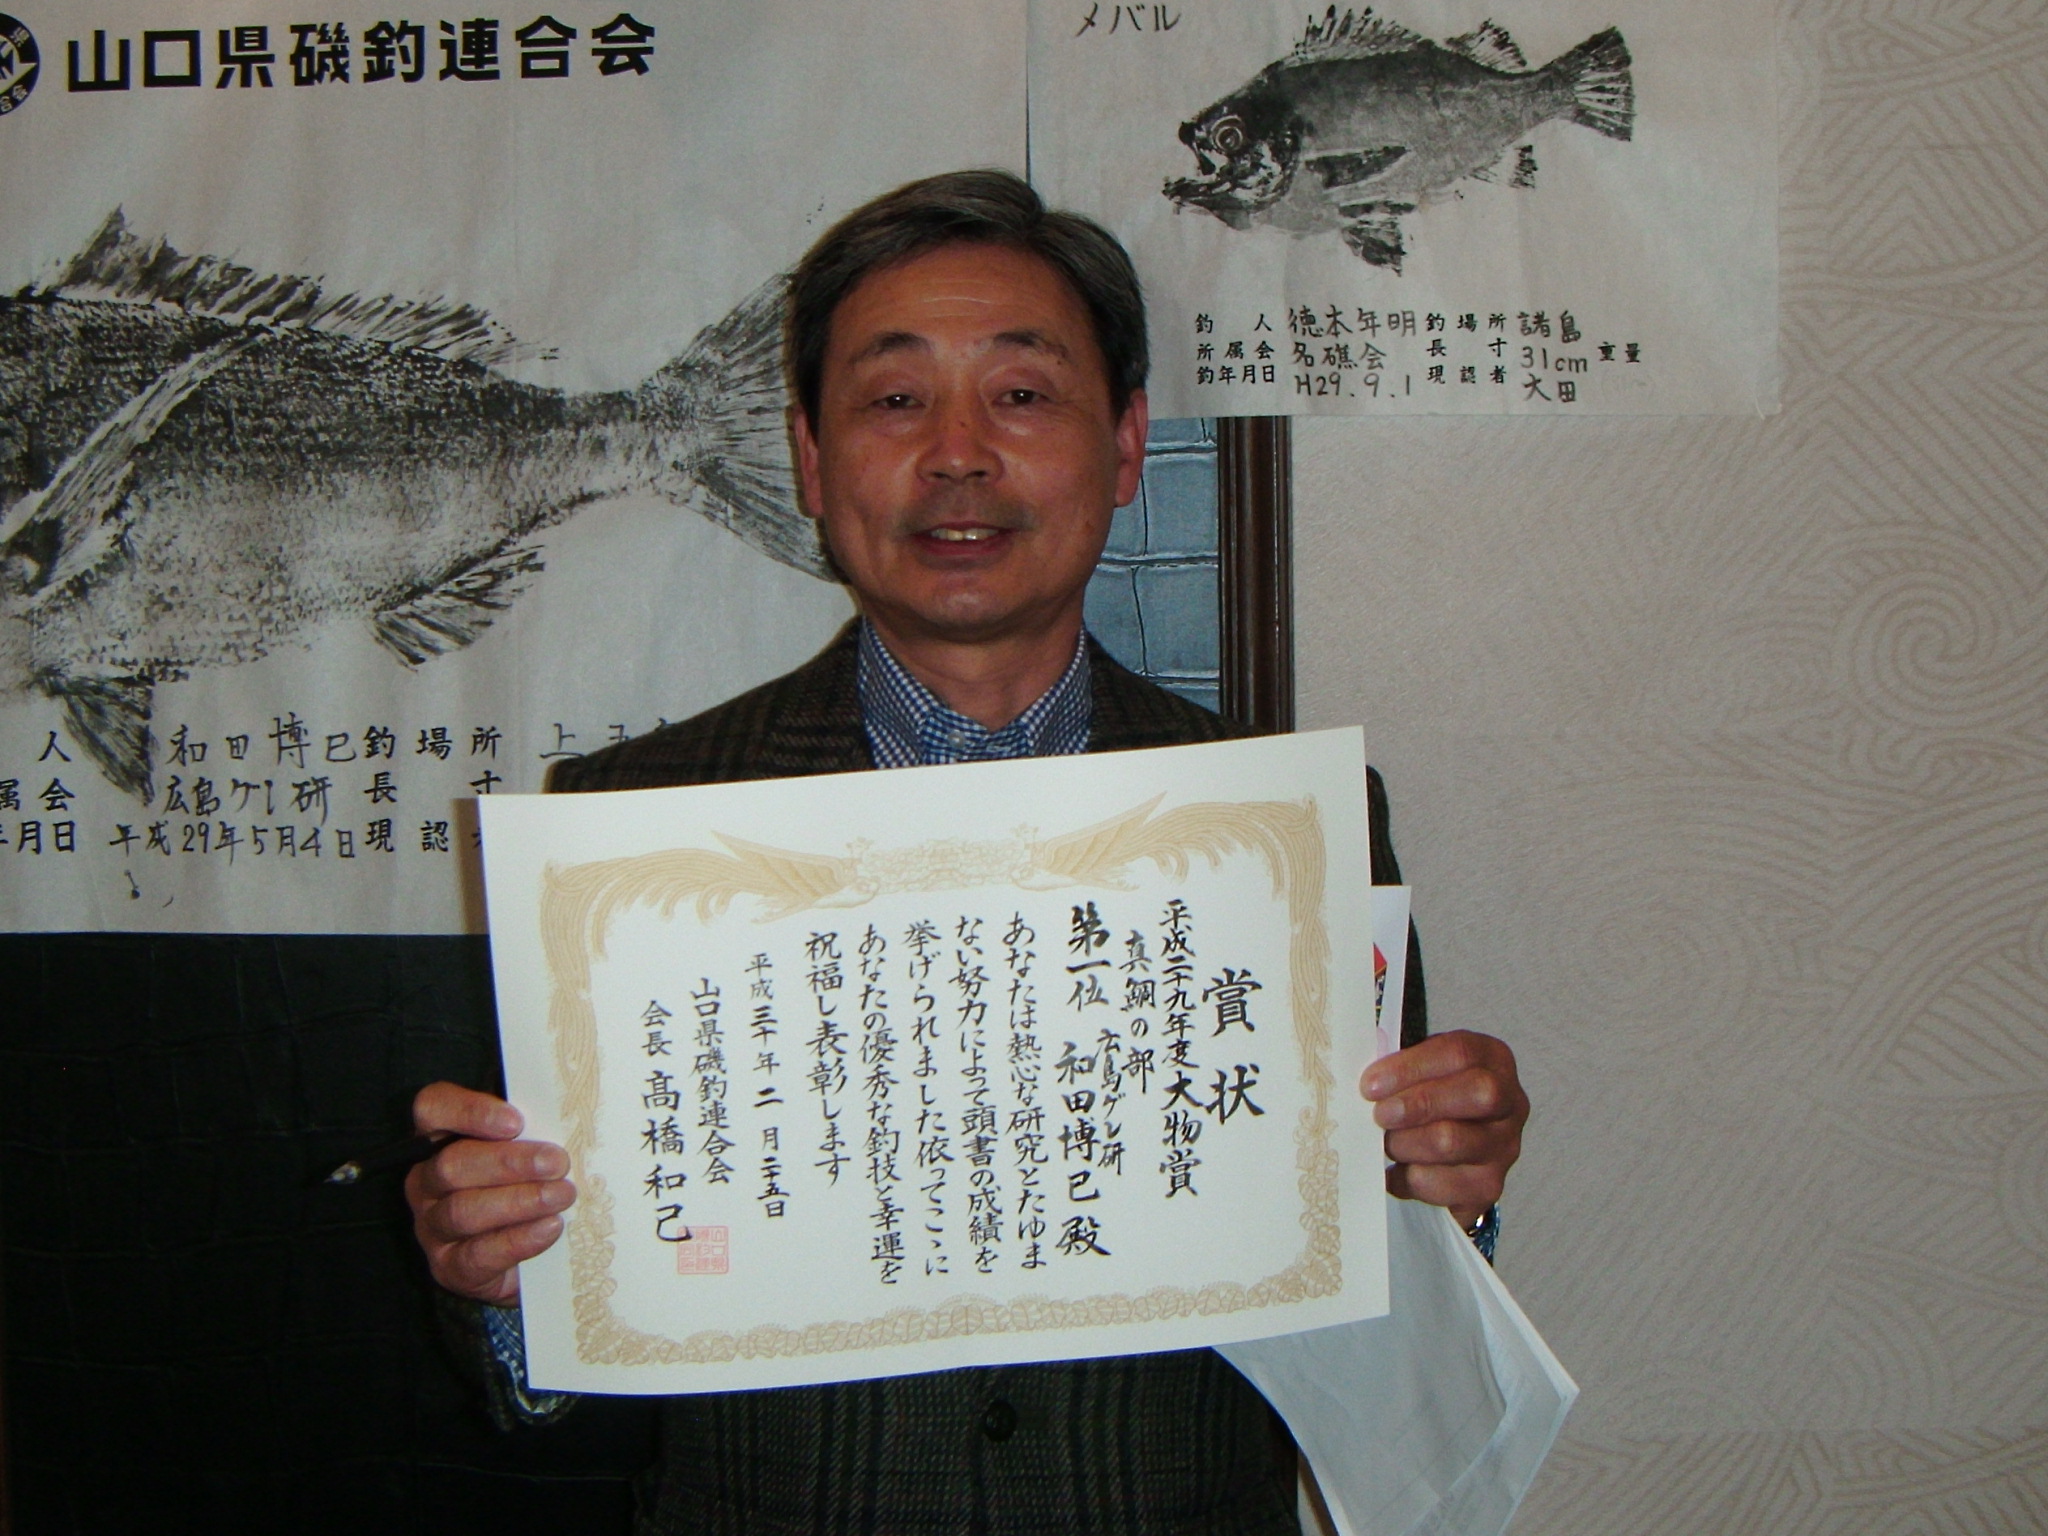 山口県磯釣連合会
メバル
釣人 徳本年明 釣場所 諸島
所属会 名礁会 長寸 31cm 重量
釣年月日 H29.9.1 現認者 大田
人 和田博巳 釣場所 上五
属会 広島グレ研 長寸
年月日 平成29年5月4日 現認
賞状
平成二十九年度大物賞
真鯛の部
広島グレ研
第一位 和田博巳殿
あなたは熱心な研究とたゆま
ない努力によって頭書の成績を
挙げられました依ってこゝに
あなたの優秀な釣技と幸運を
祝福し表彰します
平成三十年二月二十五日
山口県磯釣連合会
会長 髙橋和己